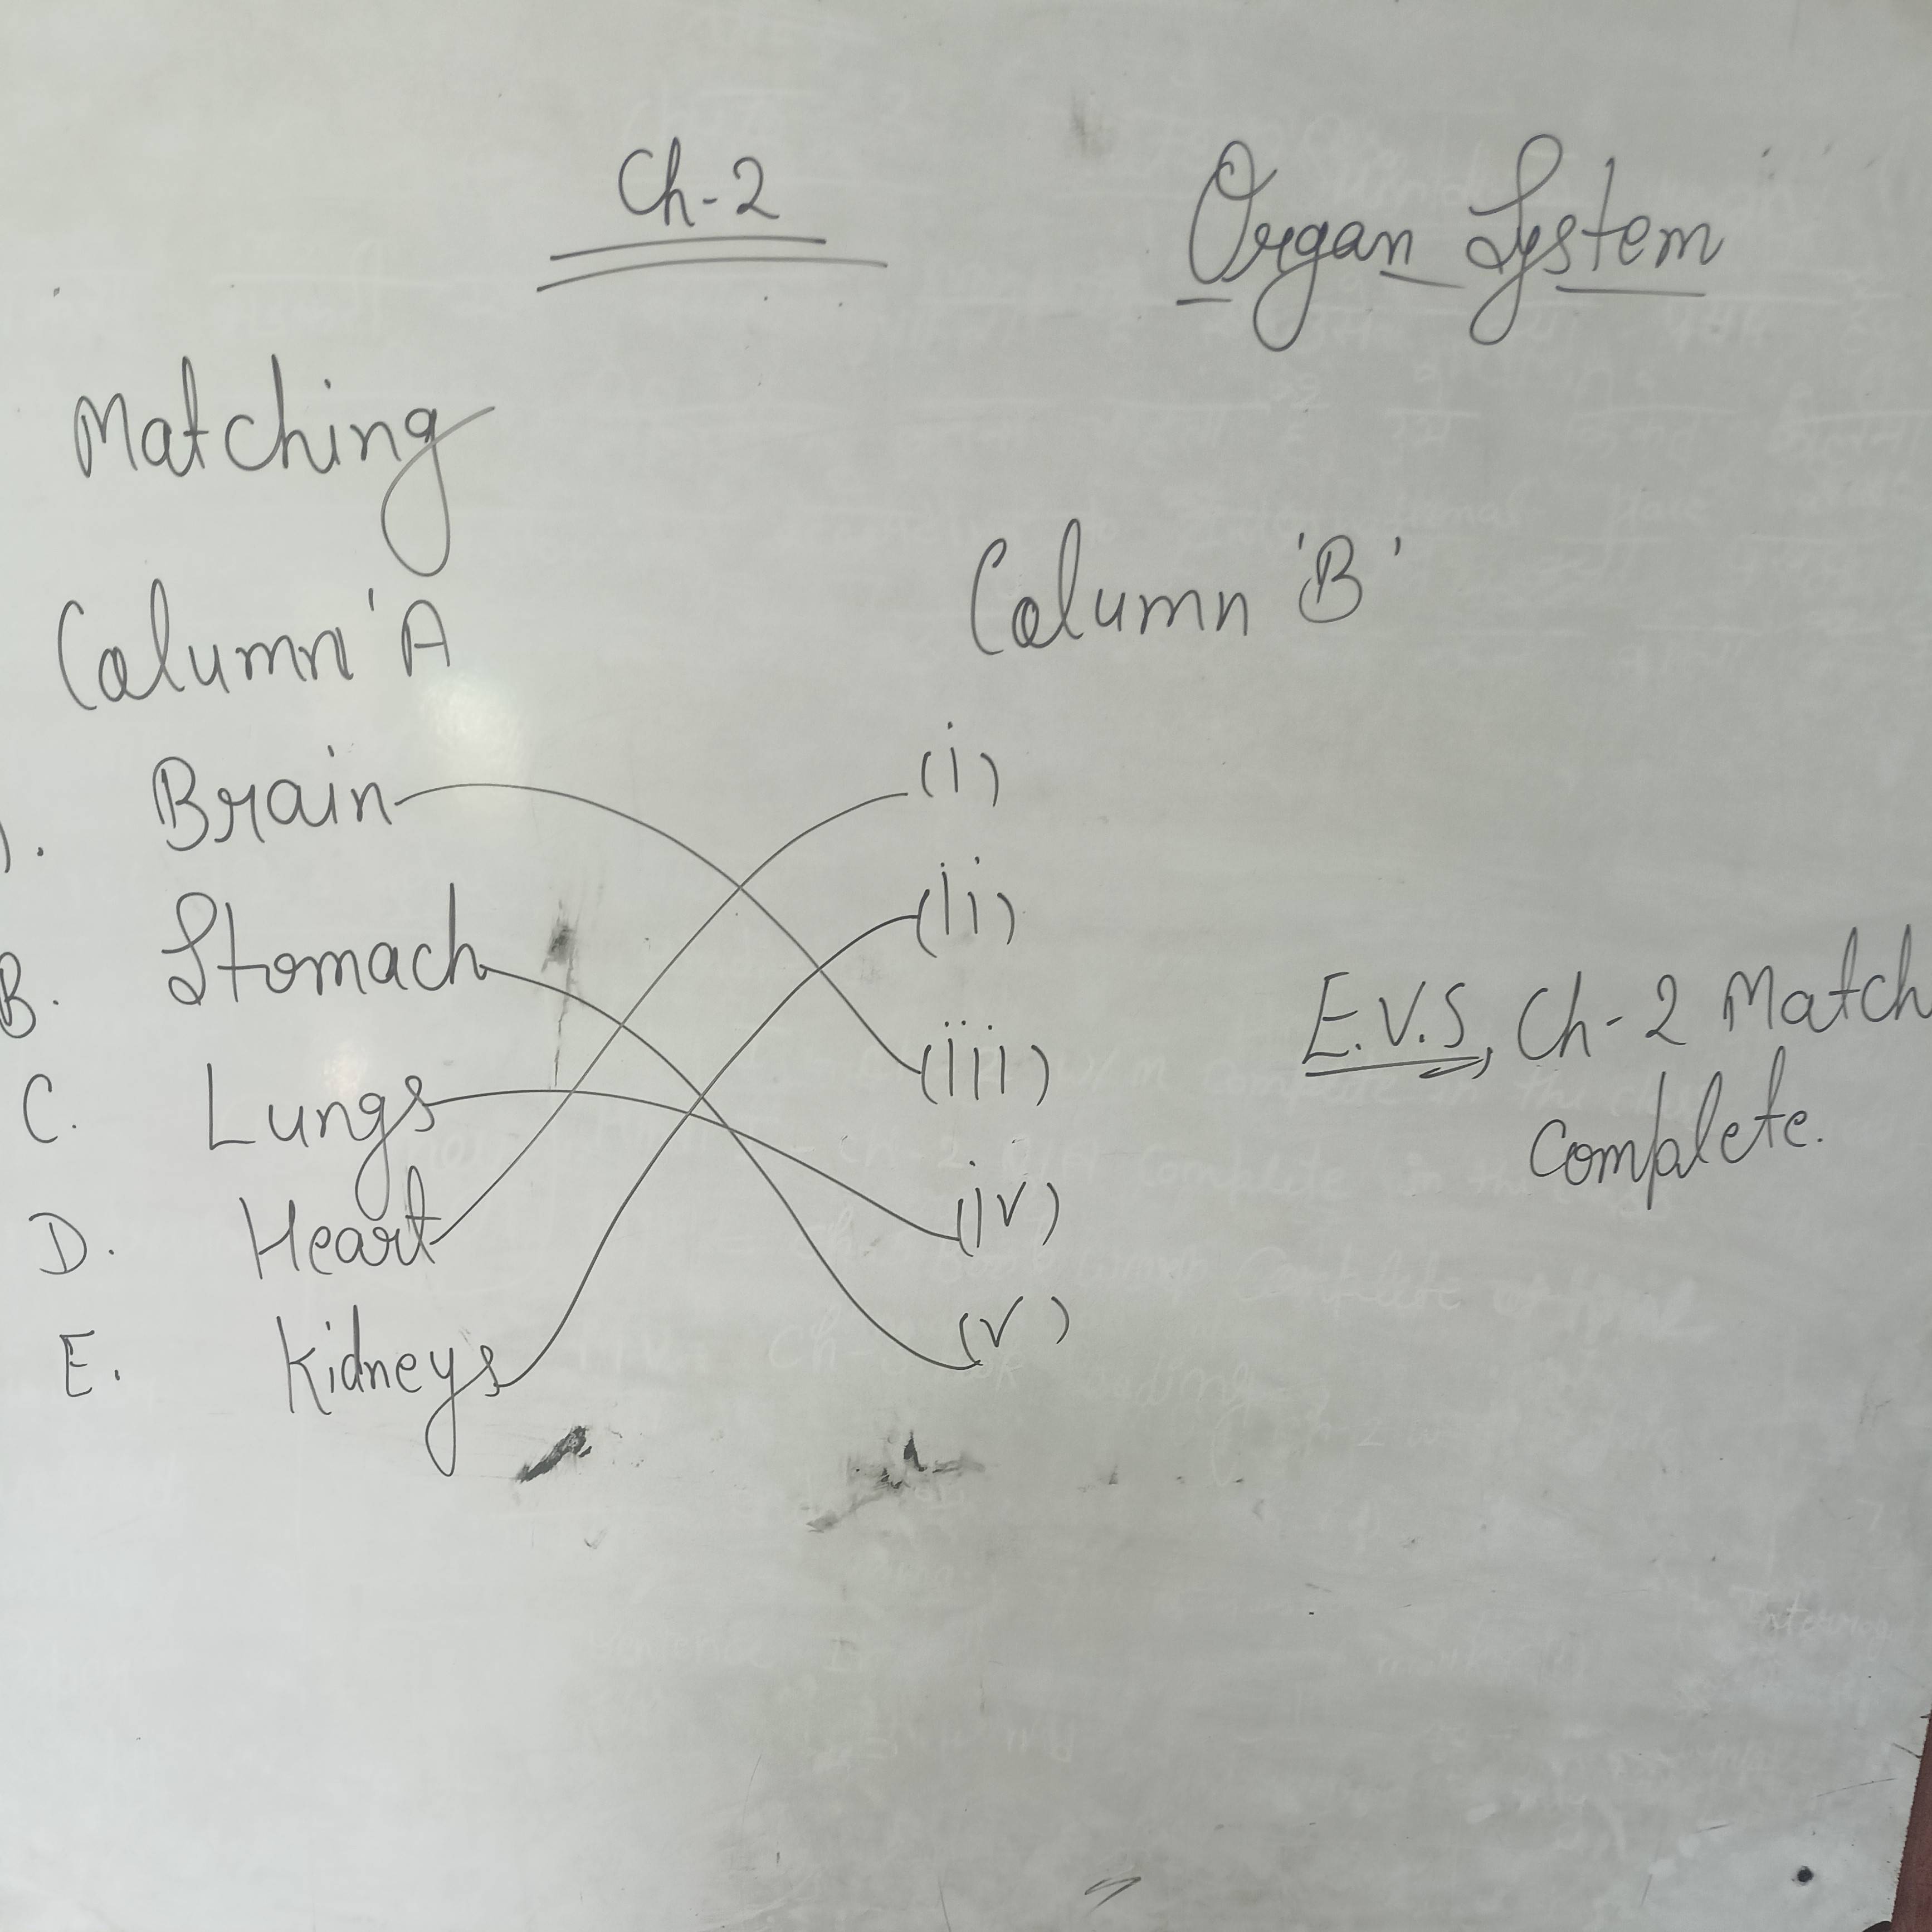 Ch-2 Organ System
Matching
Column 'A Column 'B'
Brain (i)
B. Stomach (ii)
C. Lungs (iii)
D. Heart (iv)
E. Kidneys (v)
E.V.S, Ch-2 Match
Complete.